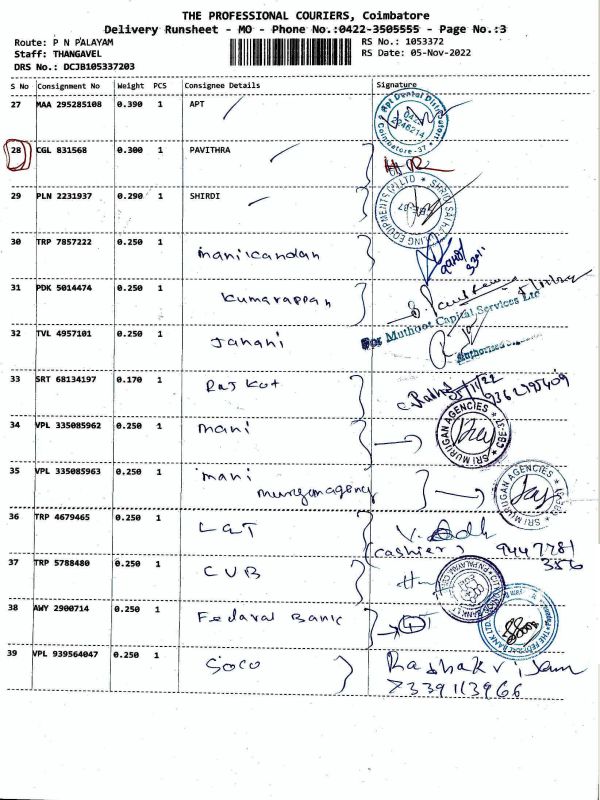 THE PROFESSIONAL COURIERS, Coimbatore
Delivery Runsheet - MO - Phone No.:0422-3505555 - Page No.:3
Route: P N PALAYAM
Staff: THANGAVEL
DRS No.: DCJB105337203
RS No.: 1053372
RS Date: 05-Nov-2022
S No Consignment No Weight PCS Consignee Details Signature
27 MAA 295285108 0.390 1 APT
Apt Dental Distributors
0422
2246214
Coimbatore - 37
28 CGL 831568 0.300 1 PAVITHRA
29 PLN 2231937 0.290 1 SHIRDI
30 TRP 7857222 0.250 1 Manikandan
31 PDK 5014474 0.250 1 Kumarappan
For Muthoot Capital Services Ltd
32 TVL 4957101 0.250 1 Janani
Authorised
33 SRT 68134197 0.170 1 Rajkot
34 VPL 335085962 0.250 1 Mani
SRI MURUGAN AGENCIES
35 VPL 335085963 0.250 1 Mani
Murugan agency
SRI MURUGAN AGENCIES
36 TRP 4679465 0.250 1 L&T
(cashier) 9447781
356
37 TRP 5788480 0.250 1 CUB
38 AWY 2900714 0.250 1 Federal Bank
THE FEDERAL BANK LTD
39 VPL 939564047 0.250 1 Goco
7339113966